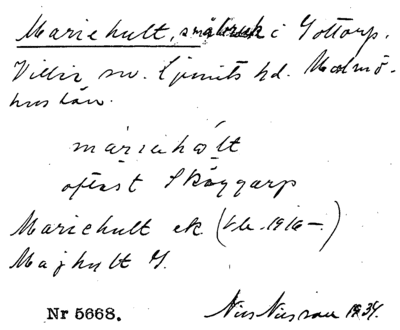 Mariehult, småbruk i Gottorp.
Villie sn. Ljunits hd. Malmö-
hus län.
màriahœ̀lt
oftast Skoggarp
Mariehult ek. (Vb. 1916—)
Majhult G.
Nr 5668. Nils Nilsson 1934.